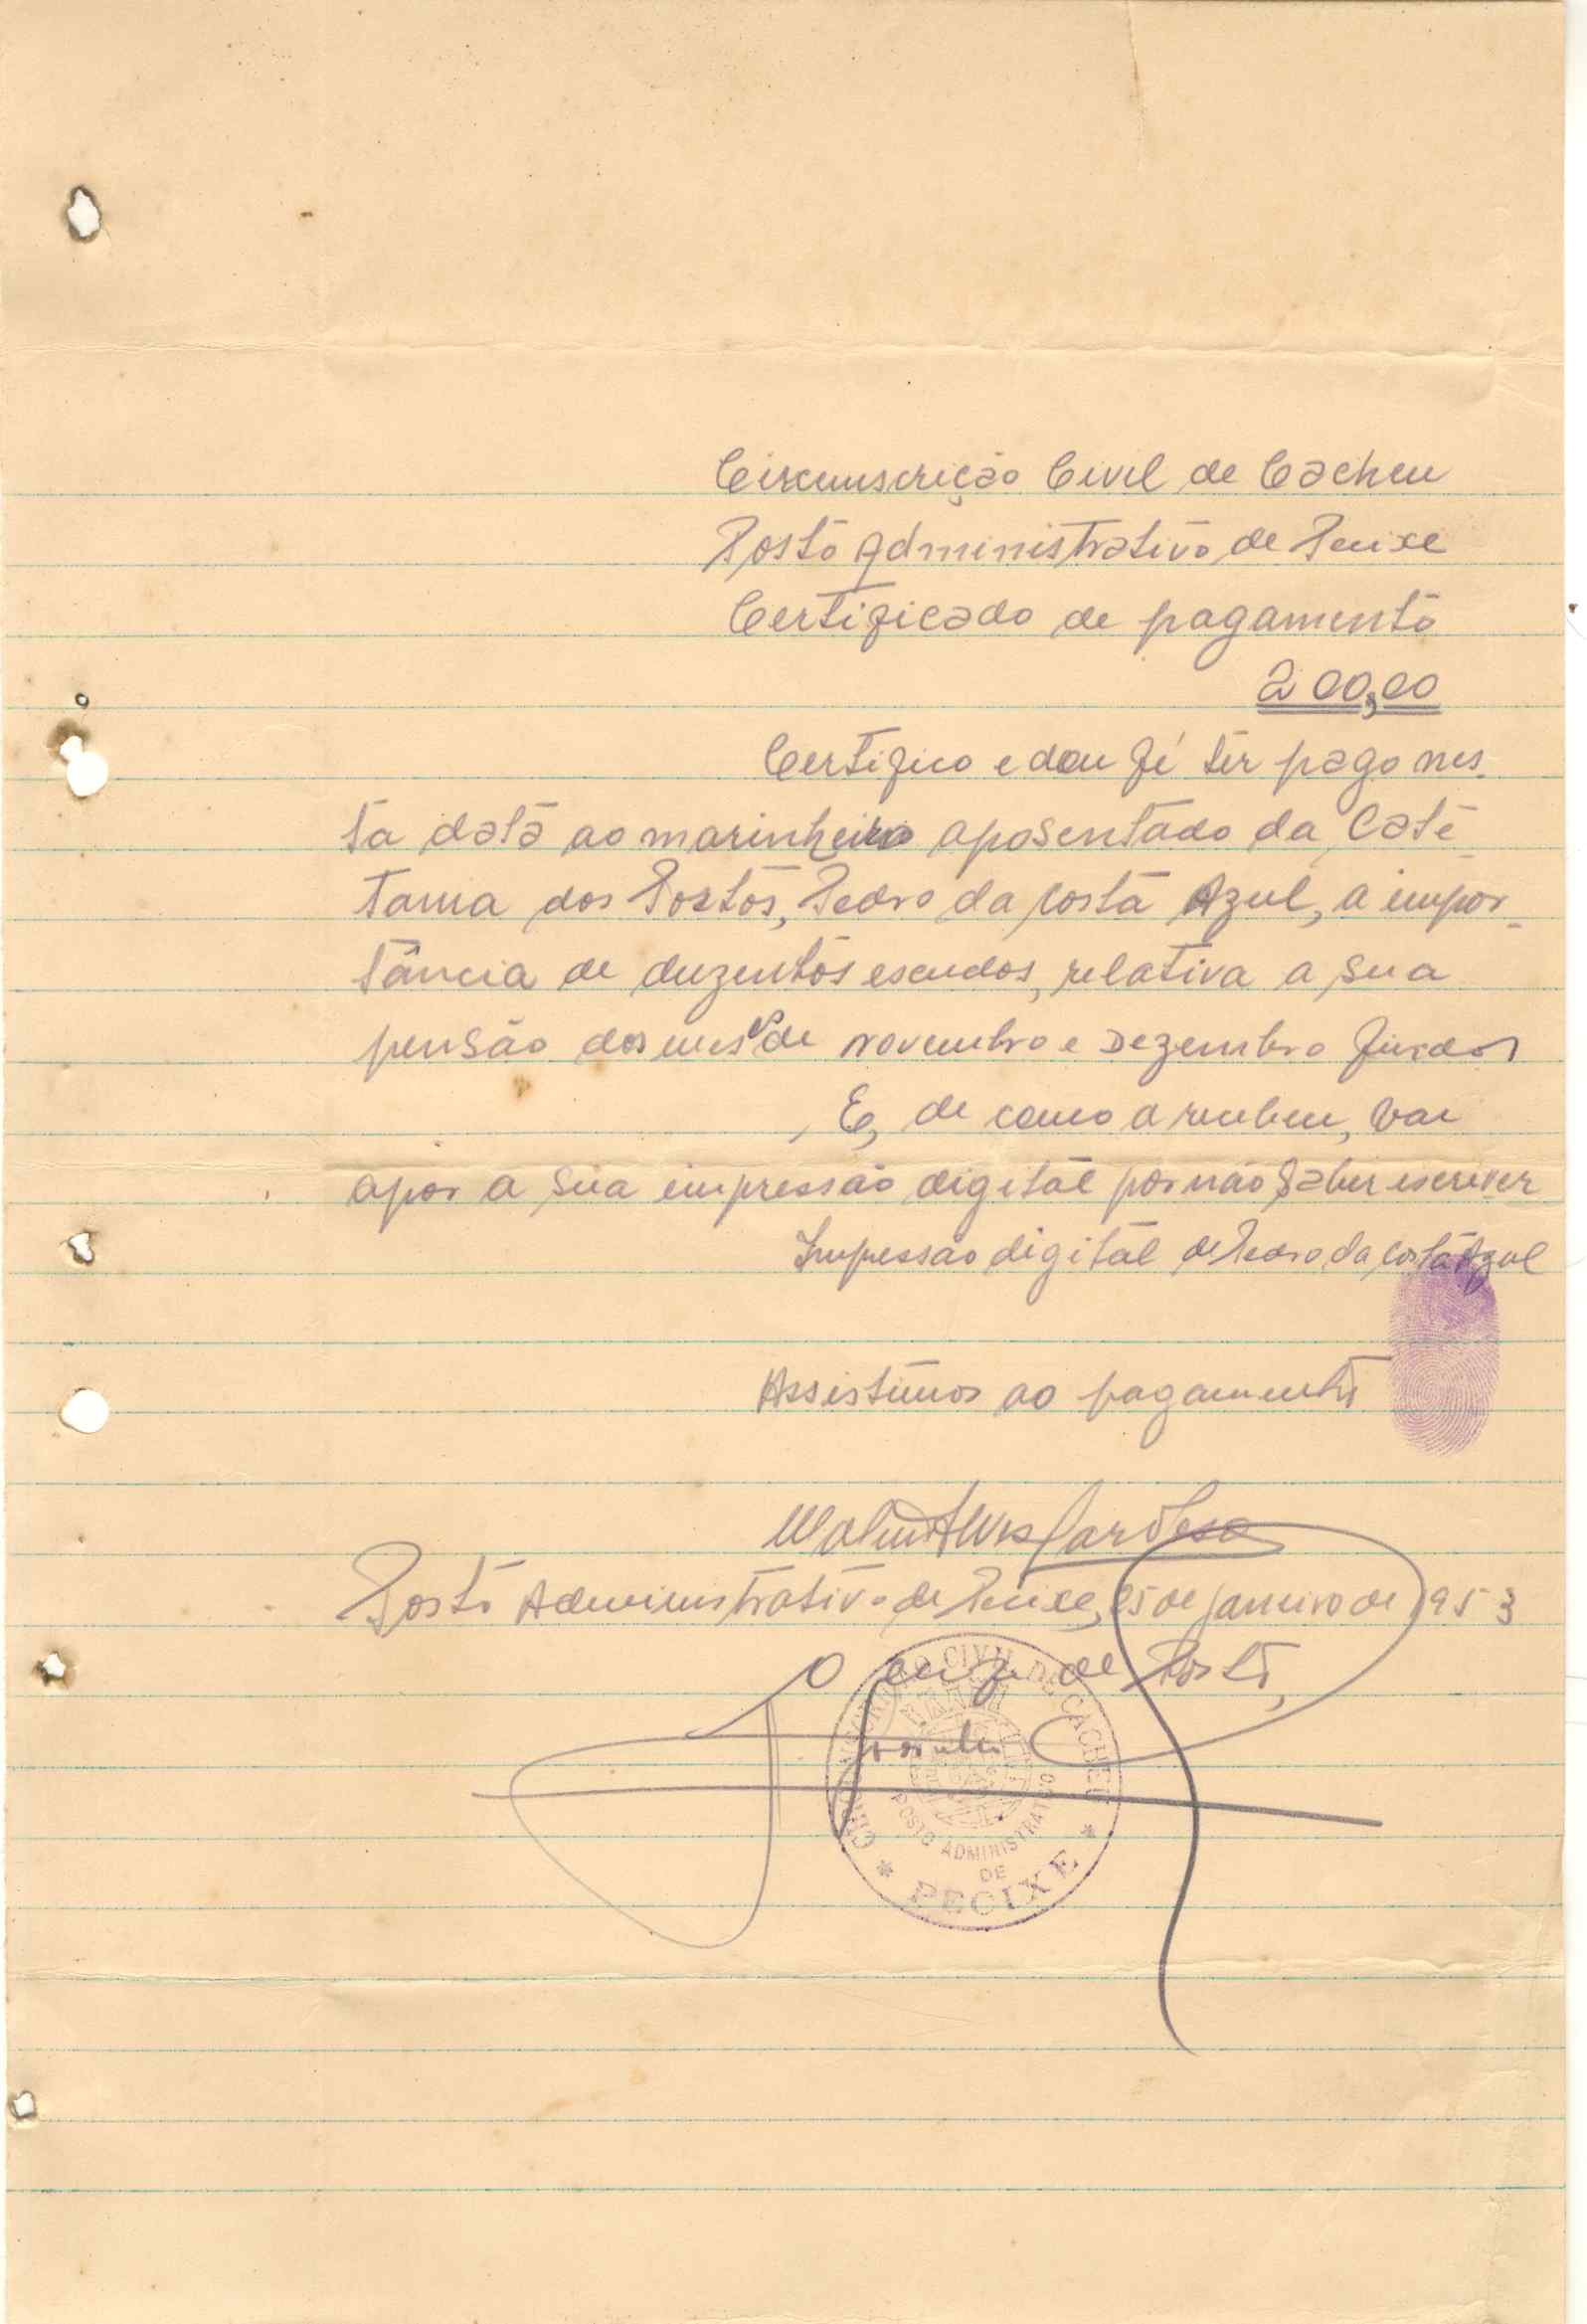 Circunscrição Civil de Cacheu
Posto Administrativo de Pecixe
Certificado de pagamento
200,00
Certifico e dou fé ter pago nes-
ta data ao marinheiro aposentado da Capi-
tania dos Portos, Pedro da Costa Azul, a impor-
tância de duzentos escudos, relativa a sua
pensão dos meses de novembro e Dezembro findos
E, de como a recebeu, vai
apor a sua impressão digital por não saber escrever
Impressão digital de Pedro da Costa Azul
Assistimos ao pagamento
Cardoso
Posto Administrativo de Pecixe, 25 de janeiro de 1953
O Chefe de Posto,
CIRCUNSCRIÇÃO CIVIL DE CACHEU
POSTO ADMINISTRATIVO
DE
* PECIXE *